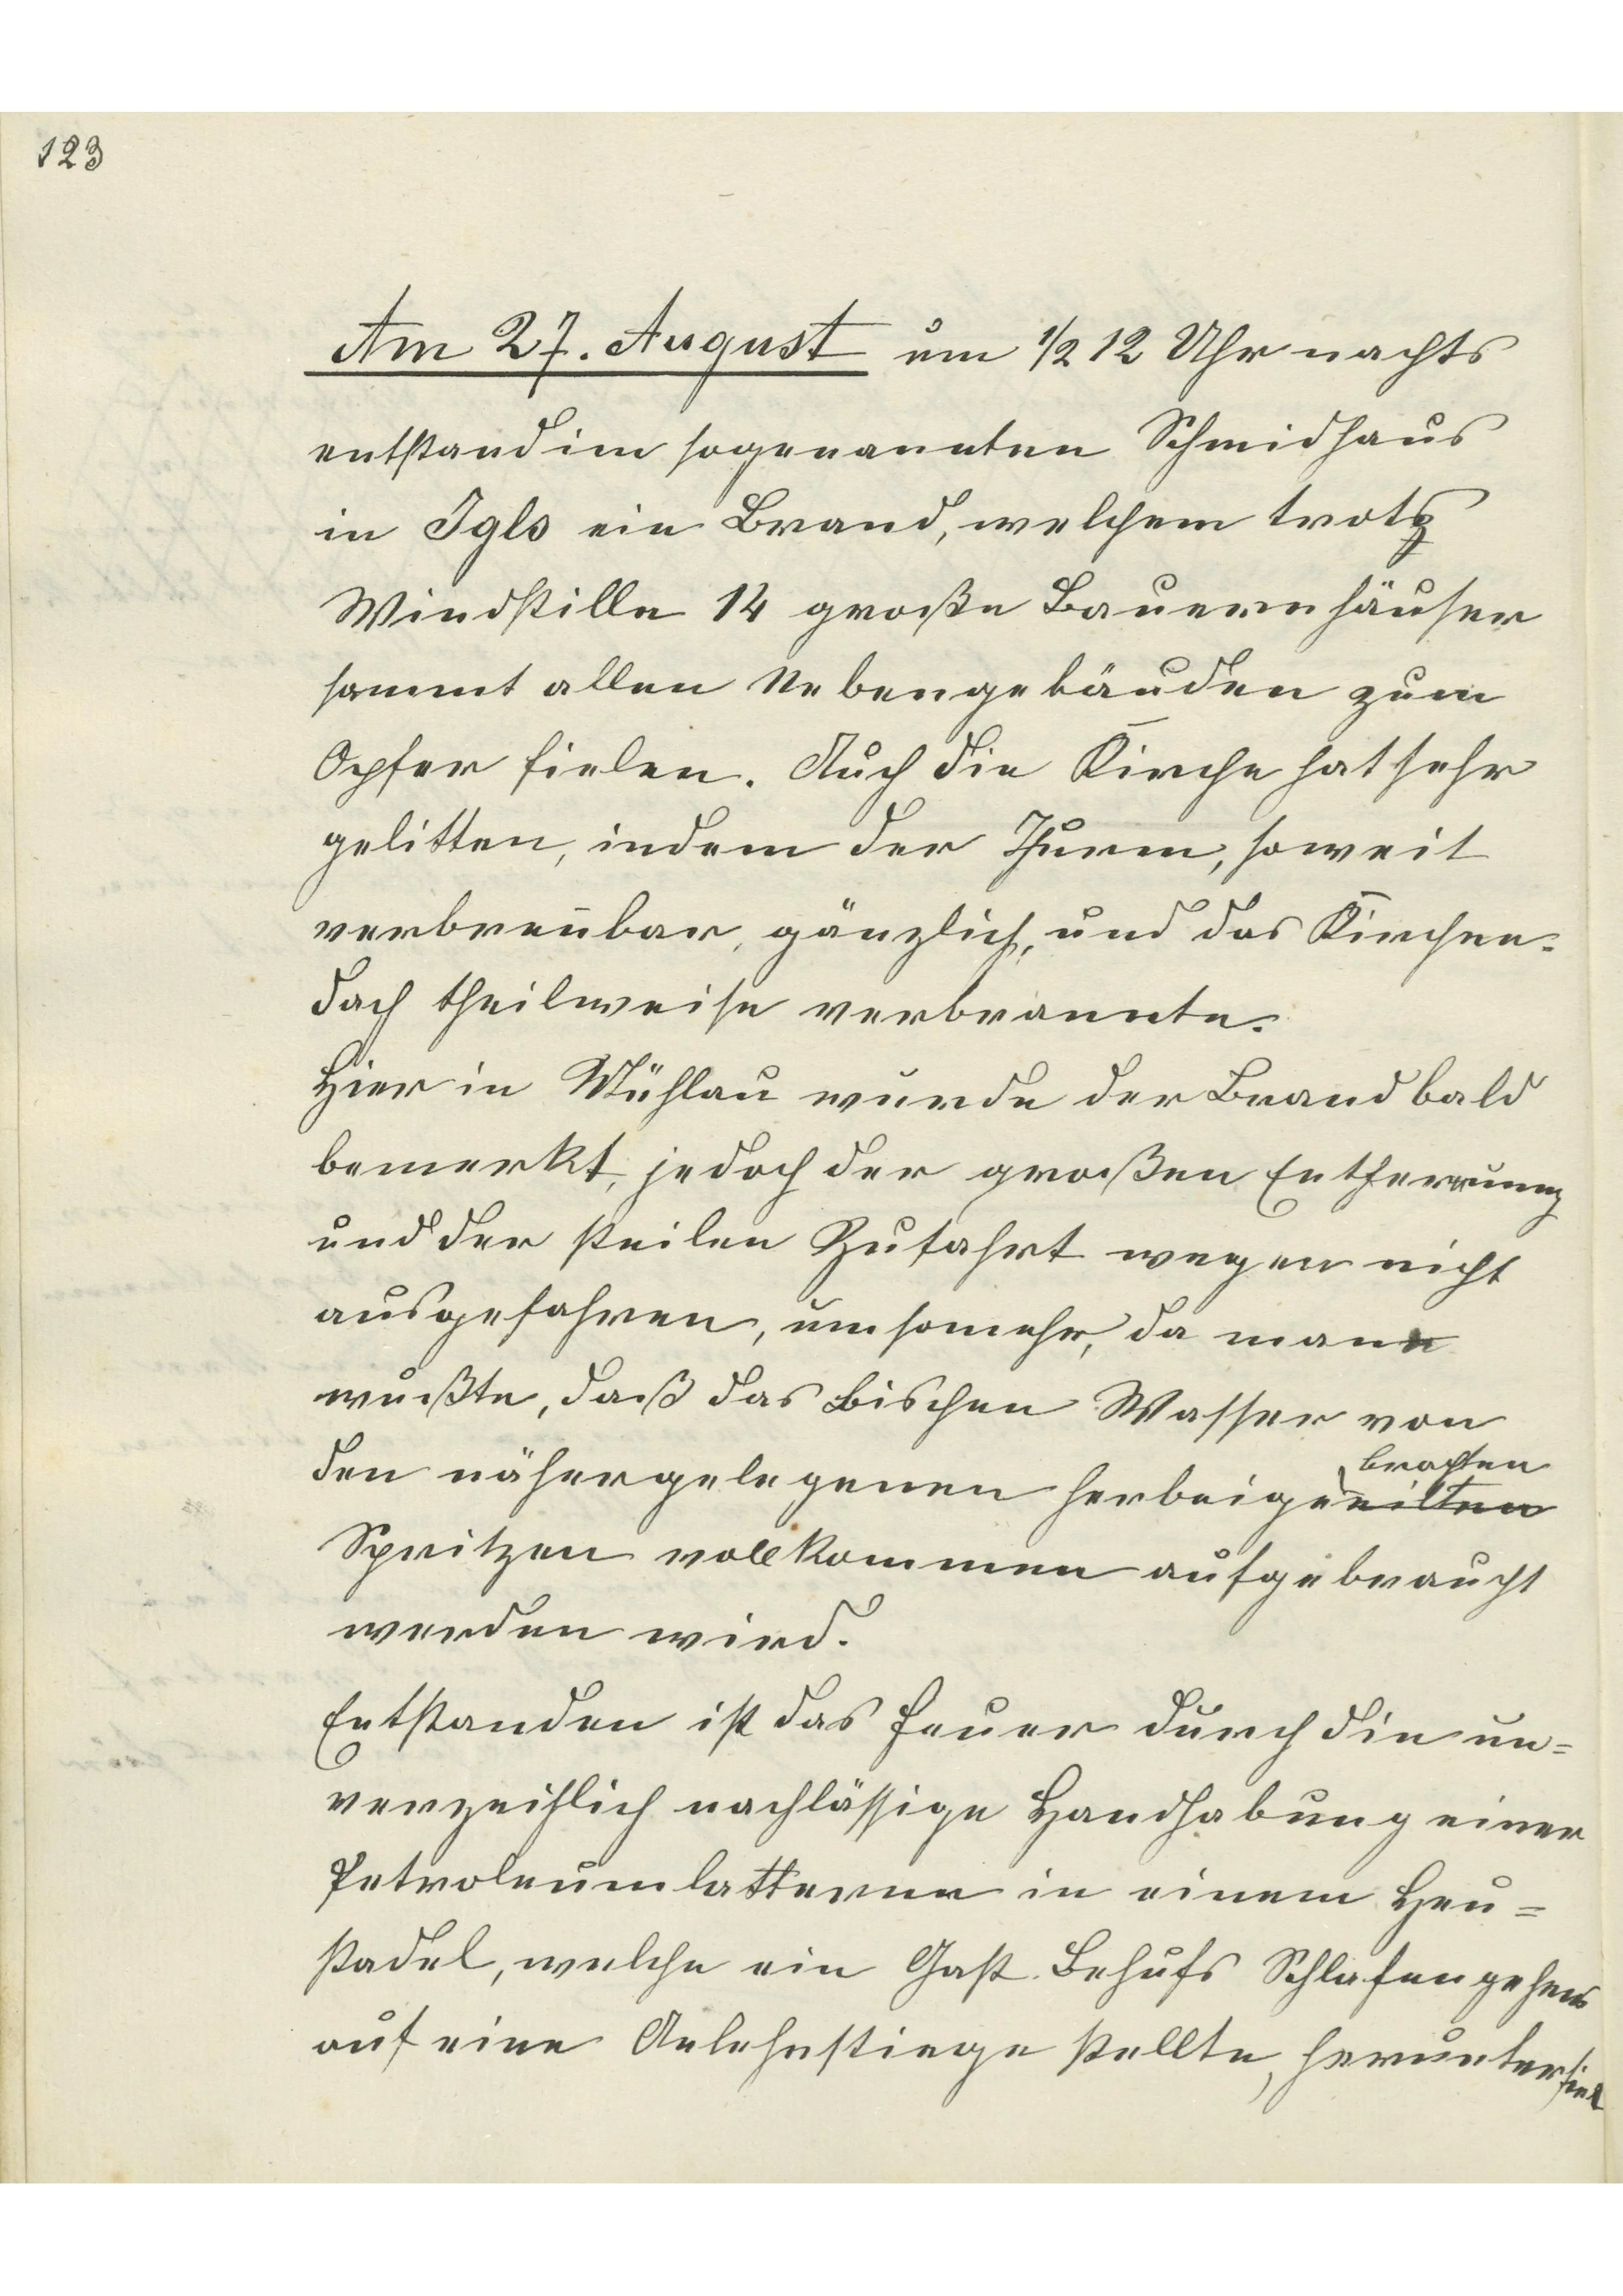 123
Am 27. August um 1/2 12 Uhr nachts
entstand im sogenannten Schmidhaus
in Igls ein Brand, welchem trotz
Windstille 14 große Bauernhäuser
sammt allen Nebengebäuden zum
Opfer fielen. Auch die Kirche hat sehr
gelitten, indem der Thurm, soweit
verbren̄bar, gänzlich, und das Kirchen-
dach theilweise verbrannte.
Hier in Mühlau wurde der Brand bald
bemerkt, jedoch der großen Entfernung
und der steilen Zufahrt wegen nicht
ausgefahren, umsomehr, da man
wußte, daß das Bischen Wasser von
brachten
den nähergelegenen herbeigeeilten
Spritzen vollkommen aufgebraucht
werden wird.
Entstanden ist das Feuer durch die un=
verzeihlich nachlässige Handhabung einer
Petroleumlatterne in einem Heu=
stadel, welche ein Gast Behufs Schlafengehens
auf eine Anlehnstiege stellte, herunterfiel